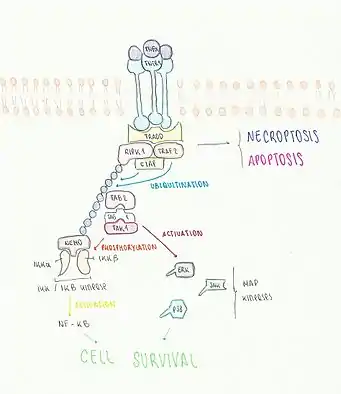 TNFα
TNFR1
TRADD
RIPK1
TRAF2
CIAP
NECROPTOSIS
APOPTOSIS
UBIQUITINATION
TAB2
TAK1
ACTIVATION
NEMO
PHOSPHORYLATION
IKKα
IKKβ
IKK / IKB KINASE
ERK
JNK
P38
MAP
KINASES
NF-KB
CELL SURVIVAL